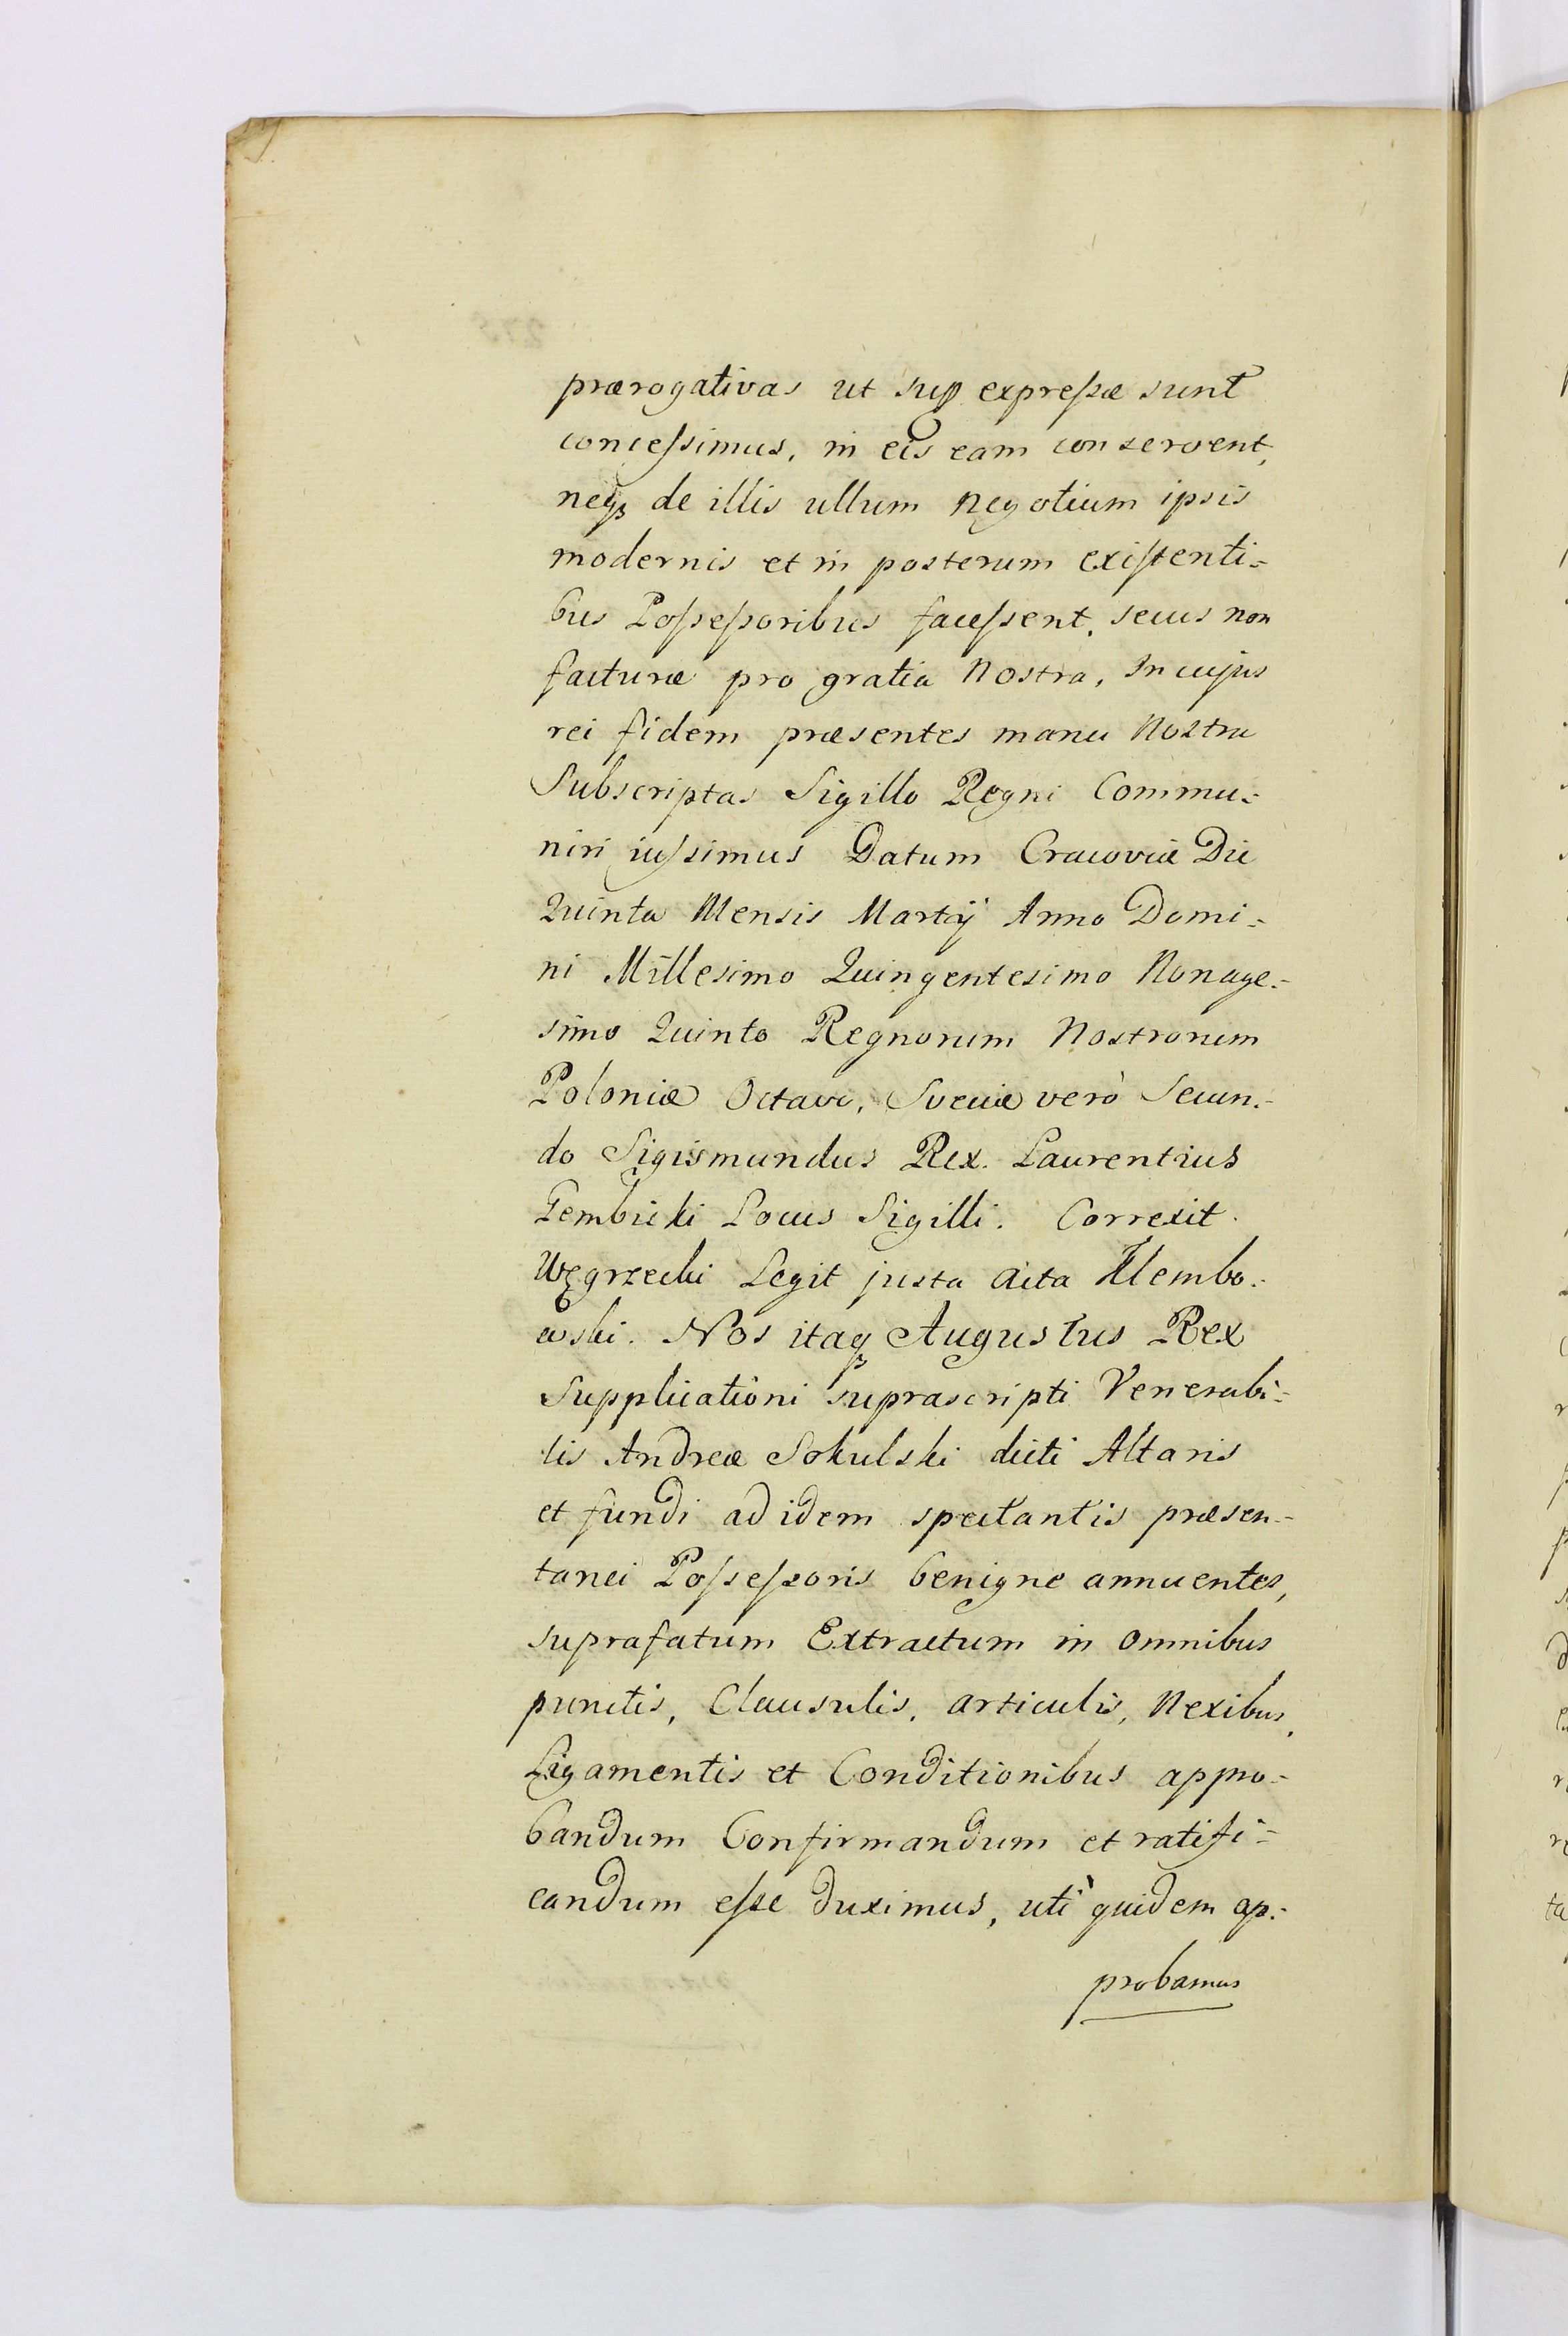 prærogativas ut sup expreſsæ sunt
conceſsimus, in eis eam conservent,
neqꝫ de illis ullum negotium ipsis
modernis et in posterum exiſtenti-
bus Poſseſsoribus faceſsent, secus non
facturæ pro gratia Nostra, In cujus
rei fidem præsentes manu Nostra
Subscriptas Sigillo Regni Commu-
niri iuſsimus Datum Cracoviæ Die
Quinta Mensis Martij Anno Domi-
ni Millesimo Quingentesimo Nonage-
simo Quinto Regnorum Nostrorum
Poloniæ Octavo, Sveciæ verò Secun-
do Sigismundus Rex. Laurentius
Gembicki Locus Sigilli. Correxit.
Węgrzecki Legit justa acta Klembo-
wski. Nos itaqꝫ Augustus Rex
Supplicationi suprascripti Venerabi-
lis Andreæ Sokulski dicti Altaris
et fundi ad idem spectantis præsen-
tanei Poſseſsoris benigne annuentes,
suprafatum Extractum in omnibus
punctis, Clausulis, articulis, Nexibus,
Ligamentis et Conditionibus appro-
bandum Confirmandum et ratifi-
candum eſse duximus, utì quidem ap-
probamus